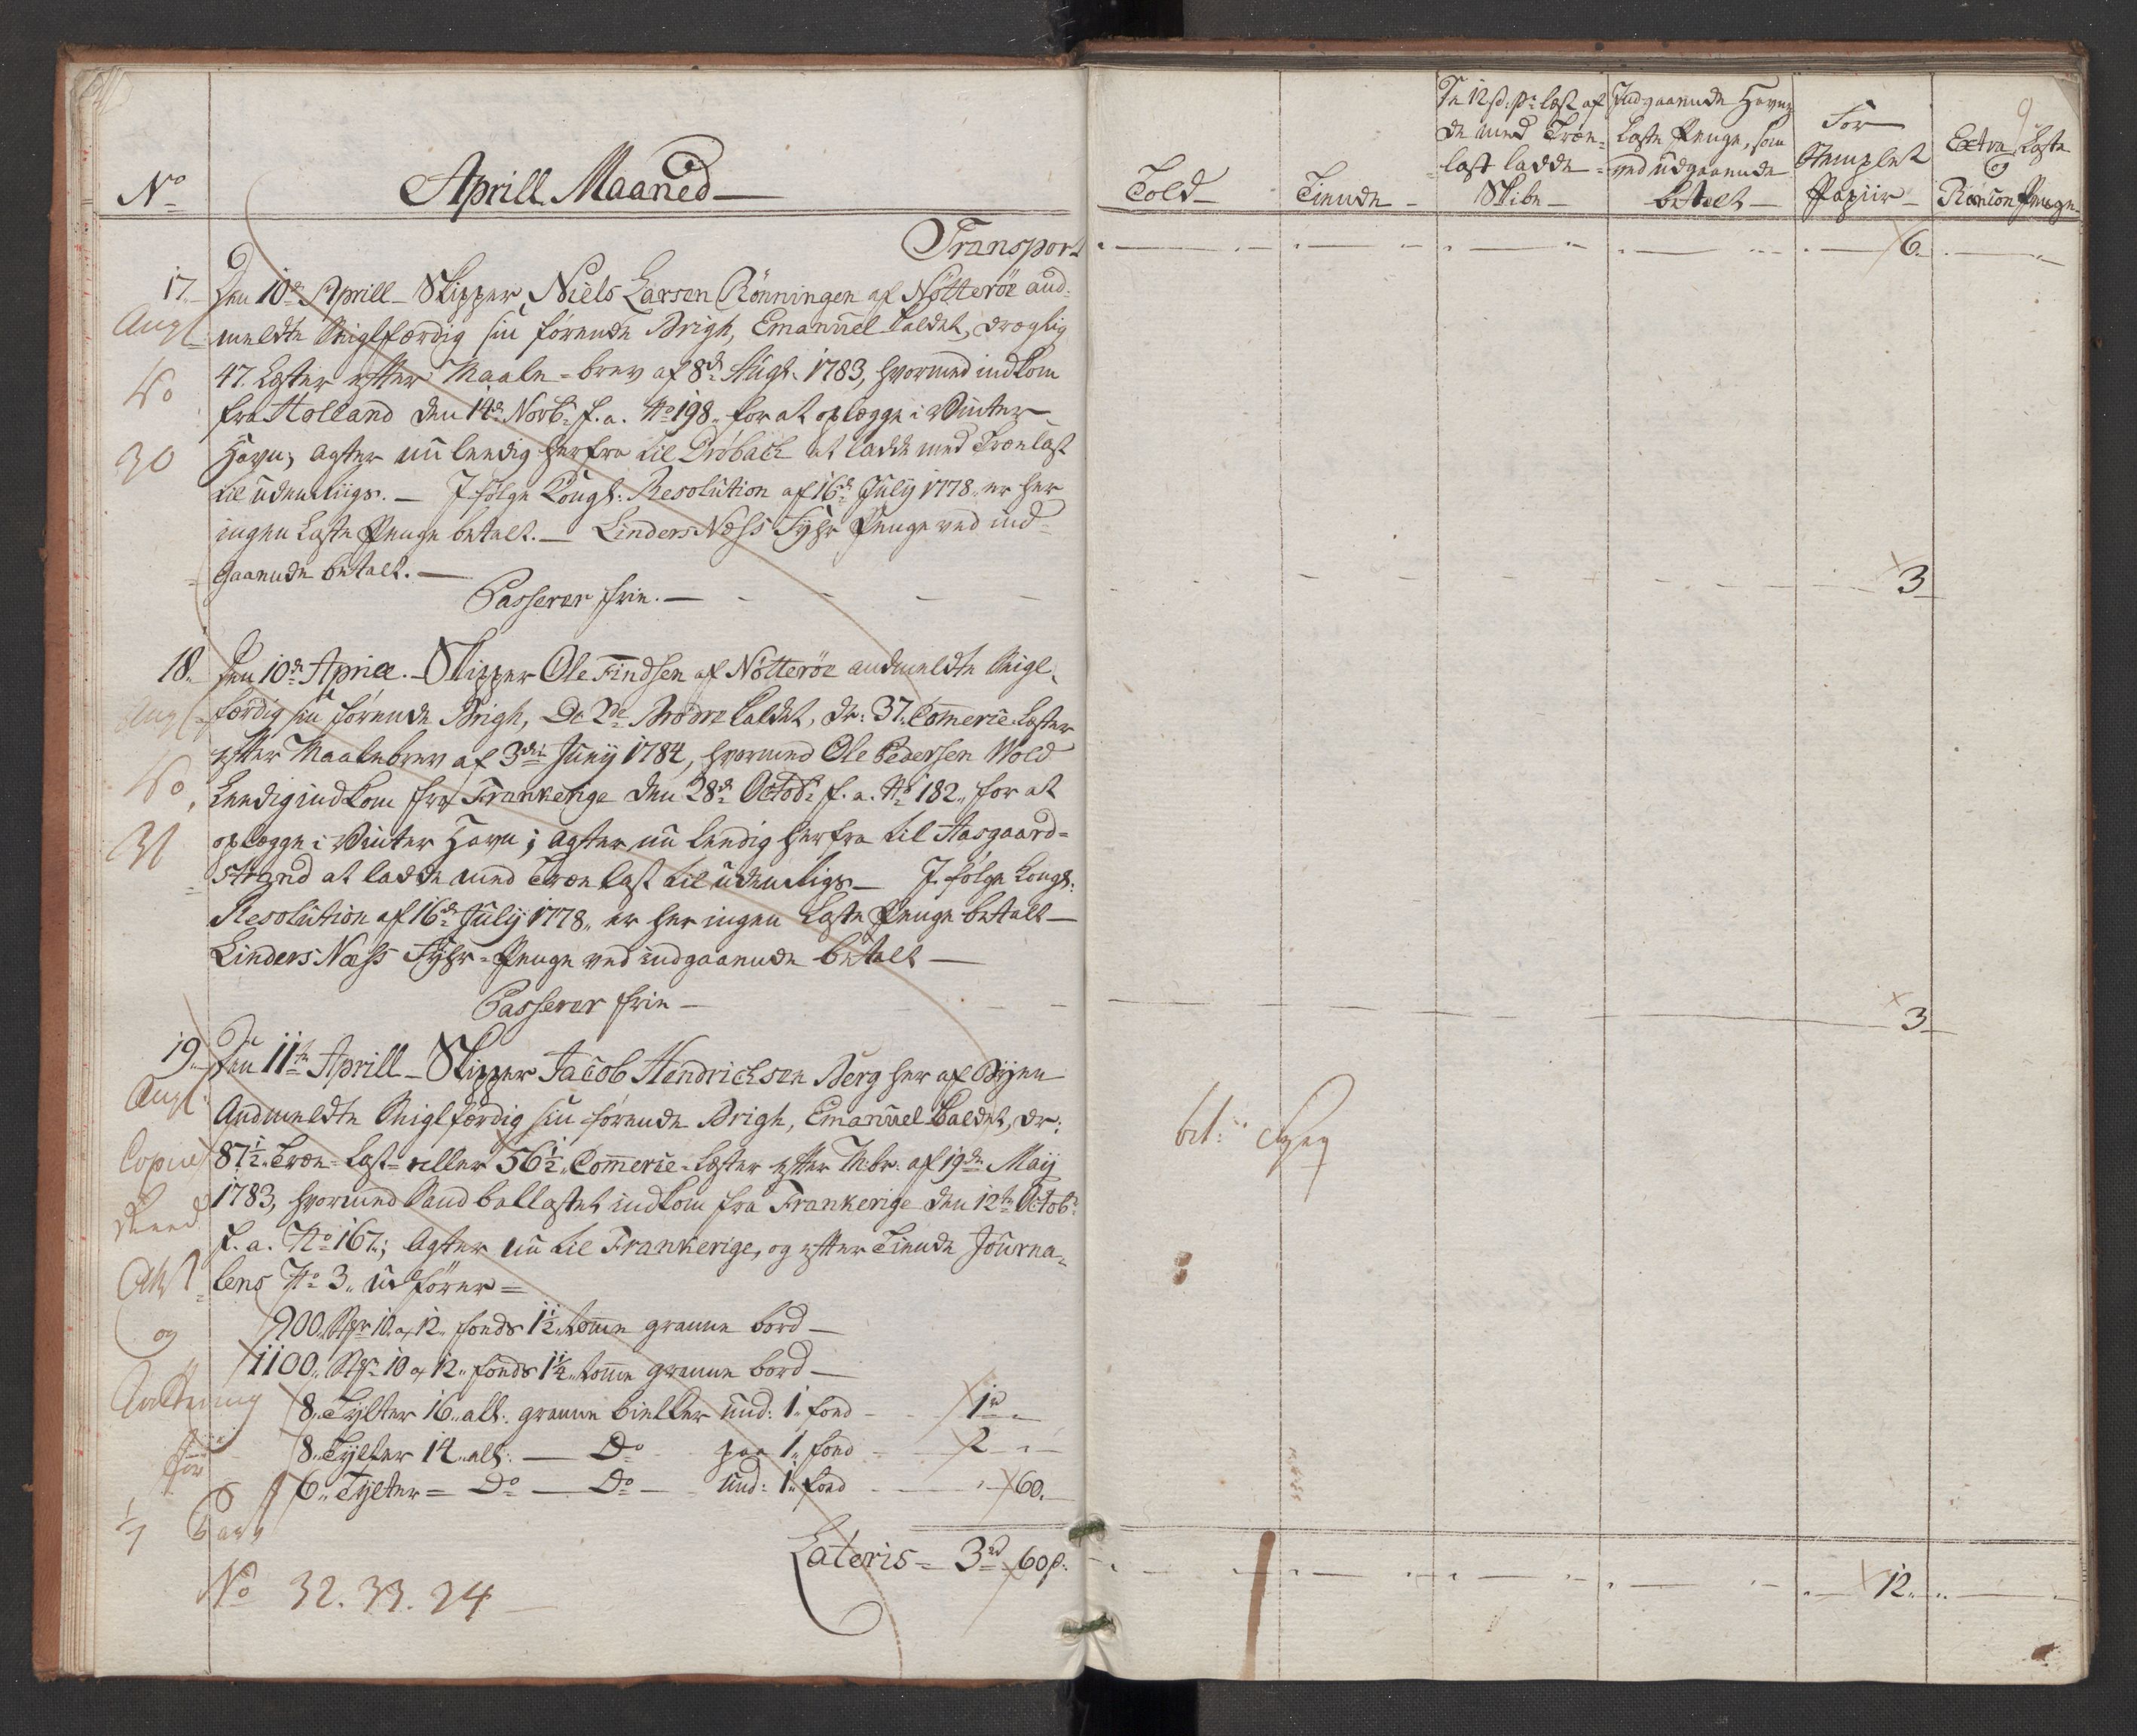 No
Aprill Maaned
Transport
17. Den 10de Aprill Skipper Niels Larsen Rönningen af Nötteröe and=
Angl= meldte Seiglfærdig sin förende Brigh, Emanuel kaldet, drægtig
47. Læster efter Maale=brev af 8de Augt. 1783, hvormed indkom
No fra Holland den 14de Novbr f. a. No 198 for at oplægge i Winter
30 Havn; agter nu leedig herfra til Dröbach at ladde med Trælast
til udenrigs. — I fölge Kongl: Resolution af 16de July 1778 er her
ingen Læste Penge betalt. — Linders Næss Fyhr Penge ved ind=
gaaende betalt. —
Passerer frie. —
18. Den 10de Aprill. Skipper Ole Findsen af Nötteröe andmeldte Seigl=
Angl= færdig sin förende Brigh, De 2de Brödre kaldet, dr: 37. Comerce Læster
efter Maalebrev af 3die Juny 1784, hvormed Ole Pedersen Wold
No Leedig indkom fra Frankerige den 28de Octobr f. a. No 182 for at
31 oplægge i Winter Havn; agter nu leedig herfra til Aasgaard=
strand at ladde med Træelast til udenrigs — I fölge Kongl:
Resolution af 16de July 1778 er her ingen Læste Penge betalt —
Linders Næss Fyhr=Penge ved indgaaende betalt —
Passerer frie —
19. Den 11te Aprill — Skipper Jacob Hendrichsen Berg her af Byen
Angl: Andmeldte Seiglfærdig sin förende Brigh, Emanuel kaldet, dr:
Copie 87½ Træe=Læst= eller 56½ Comerce=Læster efter M:br: af 19de Maij
1783, hvormed Sandballastet indkom fra Frankerige den 12te Octobr
f. a. No 167; Agter nu til Frankerige, og efter Tiende Journa=
lens No 3 udförer=
og 900 10 a 12 fonds 1½ tomme granne bord —
1100 10 a 12 fonds 1¼ tomme granne bord —
8 Tylter 16 all: granne bielker und: 1 fond 1rd
for 8 Tylter 14 all: — Do paa 1 fond 2
6 Tylter = Do — Do — und: 1 fond 60.
Lateris = 3rd 60s.
No 32. 33. 24
9
Told
Tiende
De 12 s: pr læst af de med Træe=last ladde Skibe
Indgaaende Havne Læste Penge, som ved udgaaende betalt
For Stemplet Papiir
Extra Læste og Rancon Penge
6.
3
3
bet:
12.